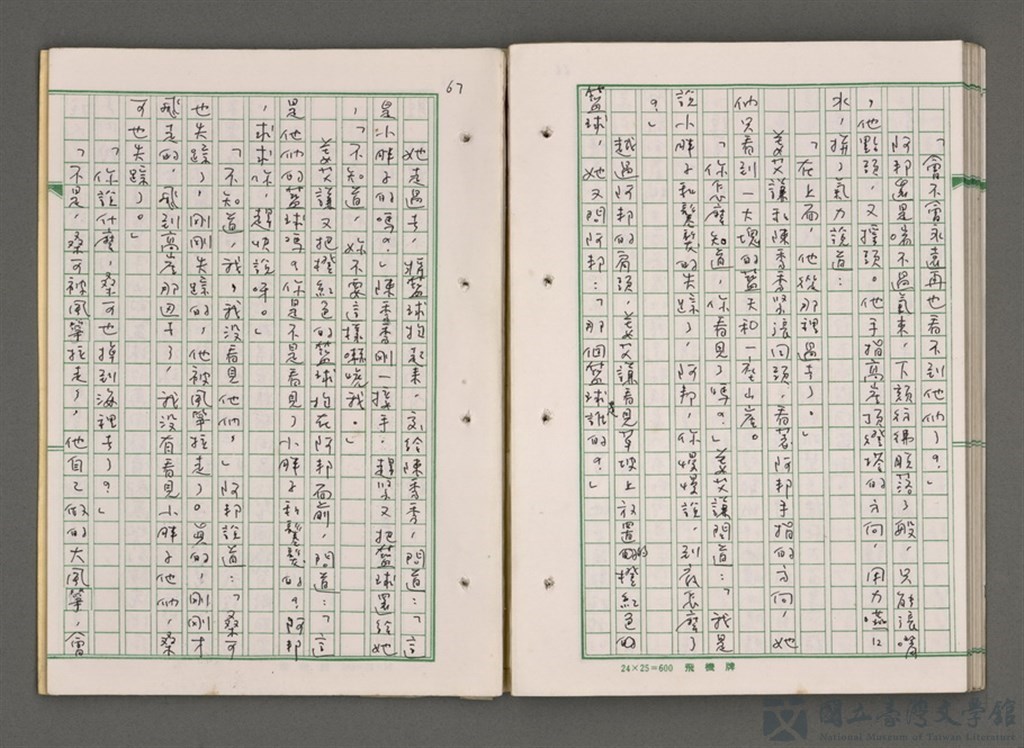 「會不會永遠再也看不到他們了？」
阿邦還是喘不過氣來，下顎彷彿脫落了般，只能張嘴
，他點頭，又搖頭。他手指高崖頂燈塔的方向，用力嚥口
水，擠了氣力說道：
「在上面，他從那裡過去了。」
姜艾讓和陳秀秀緊張回頭，看著阿邦手指的方向，她
們只看到一大塊的藍天和一座山崖。
「你怎麼知道，你看見了嗎？」姜艾讓問道：「我是
說小胖子和鬈髮的失蹤了，阿邦，你慢慢說，到底怎麼了
？」
越過阿邦的肩頭，姜艾讓看見草坡上放置的橙紅色的
籃球，她又問阿邦：「那個籃球是誰的？」
67
她走過去，將籃球抱起來，交給陳秀秀，問道：「這
是小胖子的嗎？」陳秀秀剛一接手，趕緊又把籃球還給她
，「不知道，妳不要這樣嚇唬我。」
姜艾讓又把橙紅色的籃球抱在阿邦面前，問道：「這
是他們的籃球嗎？你是不是看見了小胖子和鬈髮的？阿邦
，求求你，趕快說呀。」
「不知道，我，我沒看見他們，」阿邦說道：「桑可
也失蹤了，剛剛失蹤的，他被風箏拉走了。真的，剛剛才
飛走的，飛到高崖那邊去了，我沒有看見小胖子他們，桑
可也失蹤了。」
「你說什麼，桑可也掉到海裡去了？」
「不是，桑可被風箏拉走了，他自己做的大風箏，會
24×25=600 飛機牌
國立臺灣文學館
National Museum of Taiwan Literature